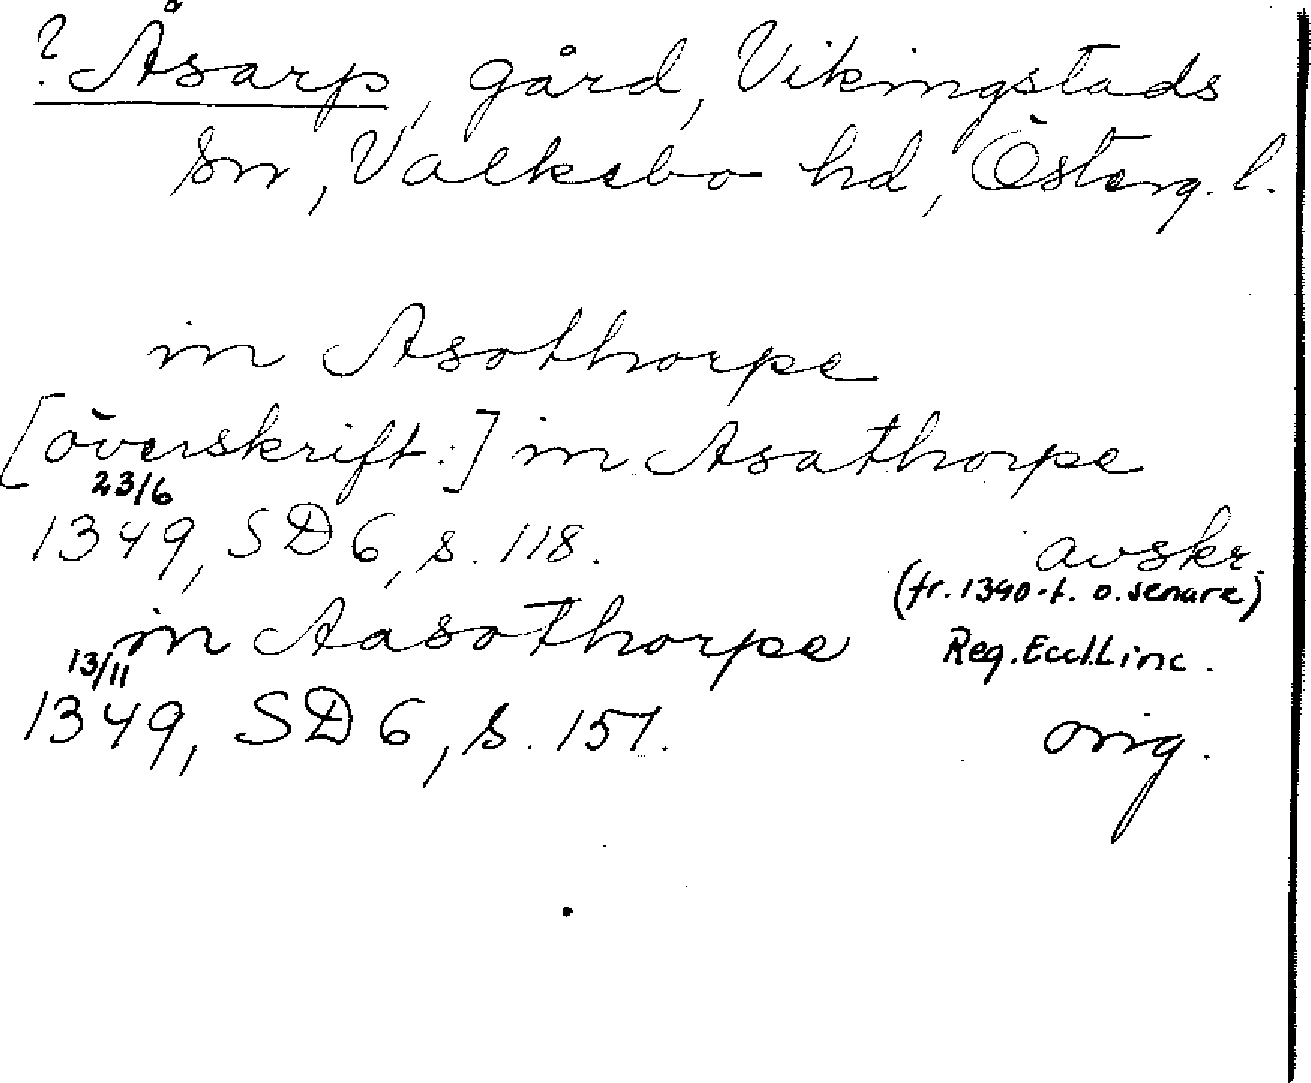 ? Åsarp, gård, Vikingstads
sn, Valkebo hd, Österg. l.
in Asothorpe
[överskrift:] in Asathorpe
23/6
1349, SD 6, s. 118. avskr.
(fr. 1390-t. o. senare)
in Aasothorpe Reg. Eccl. Linc.
13/11
1349, SD 6, s. 157. orig.